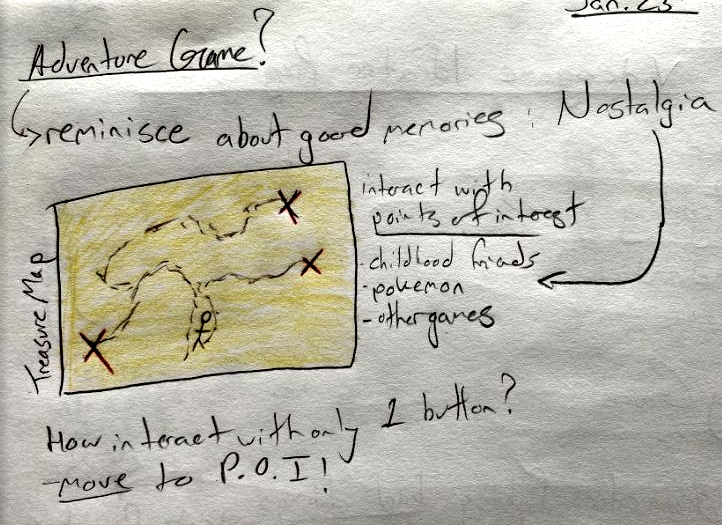 Jan. 23
Adventure Game?
reminisce about good memories : Nostalgia
interact with
points of interest
- childhood friends
- pokemon
- other games
Treasure Map
How interact with only 1 button?
- move to P.O.I!